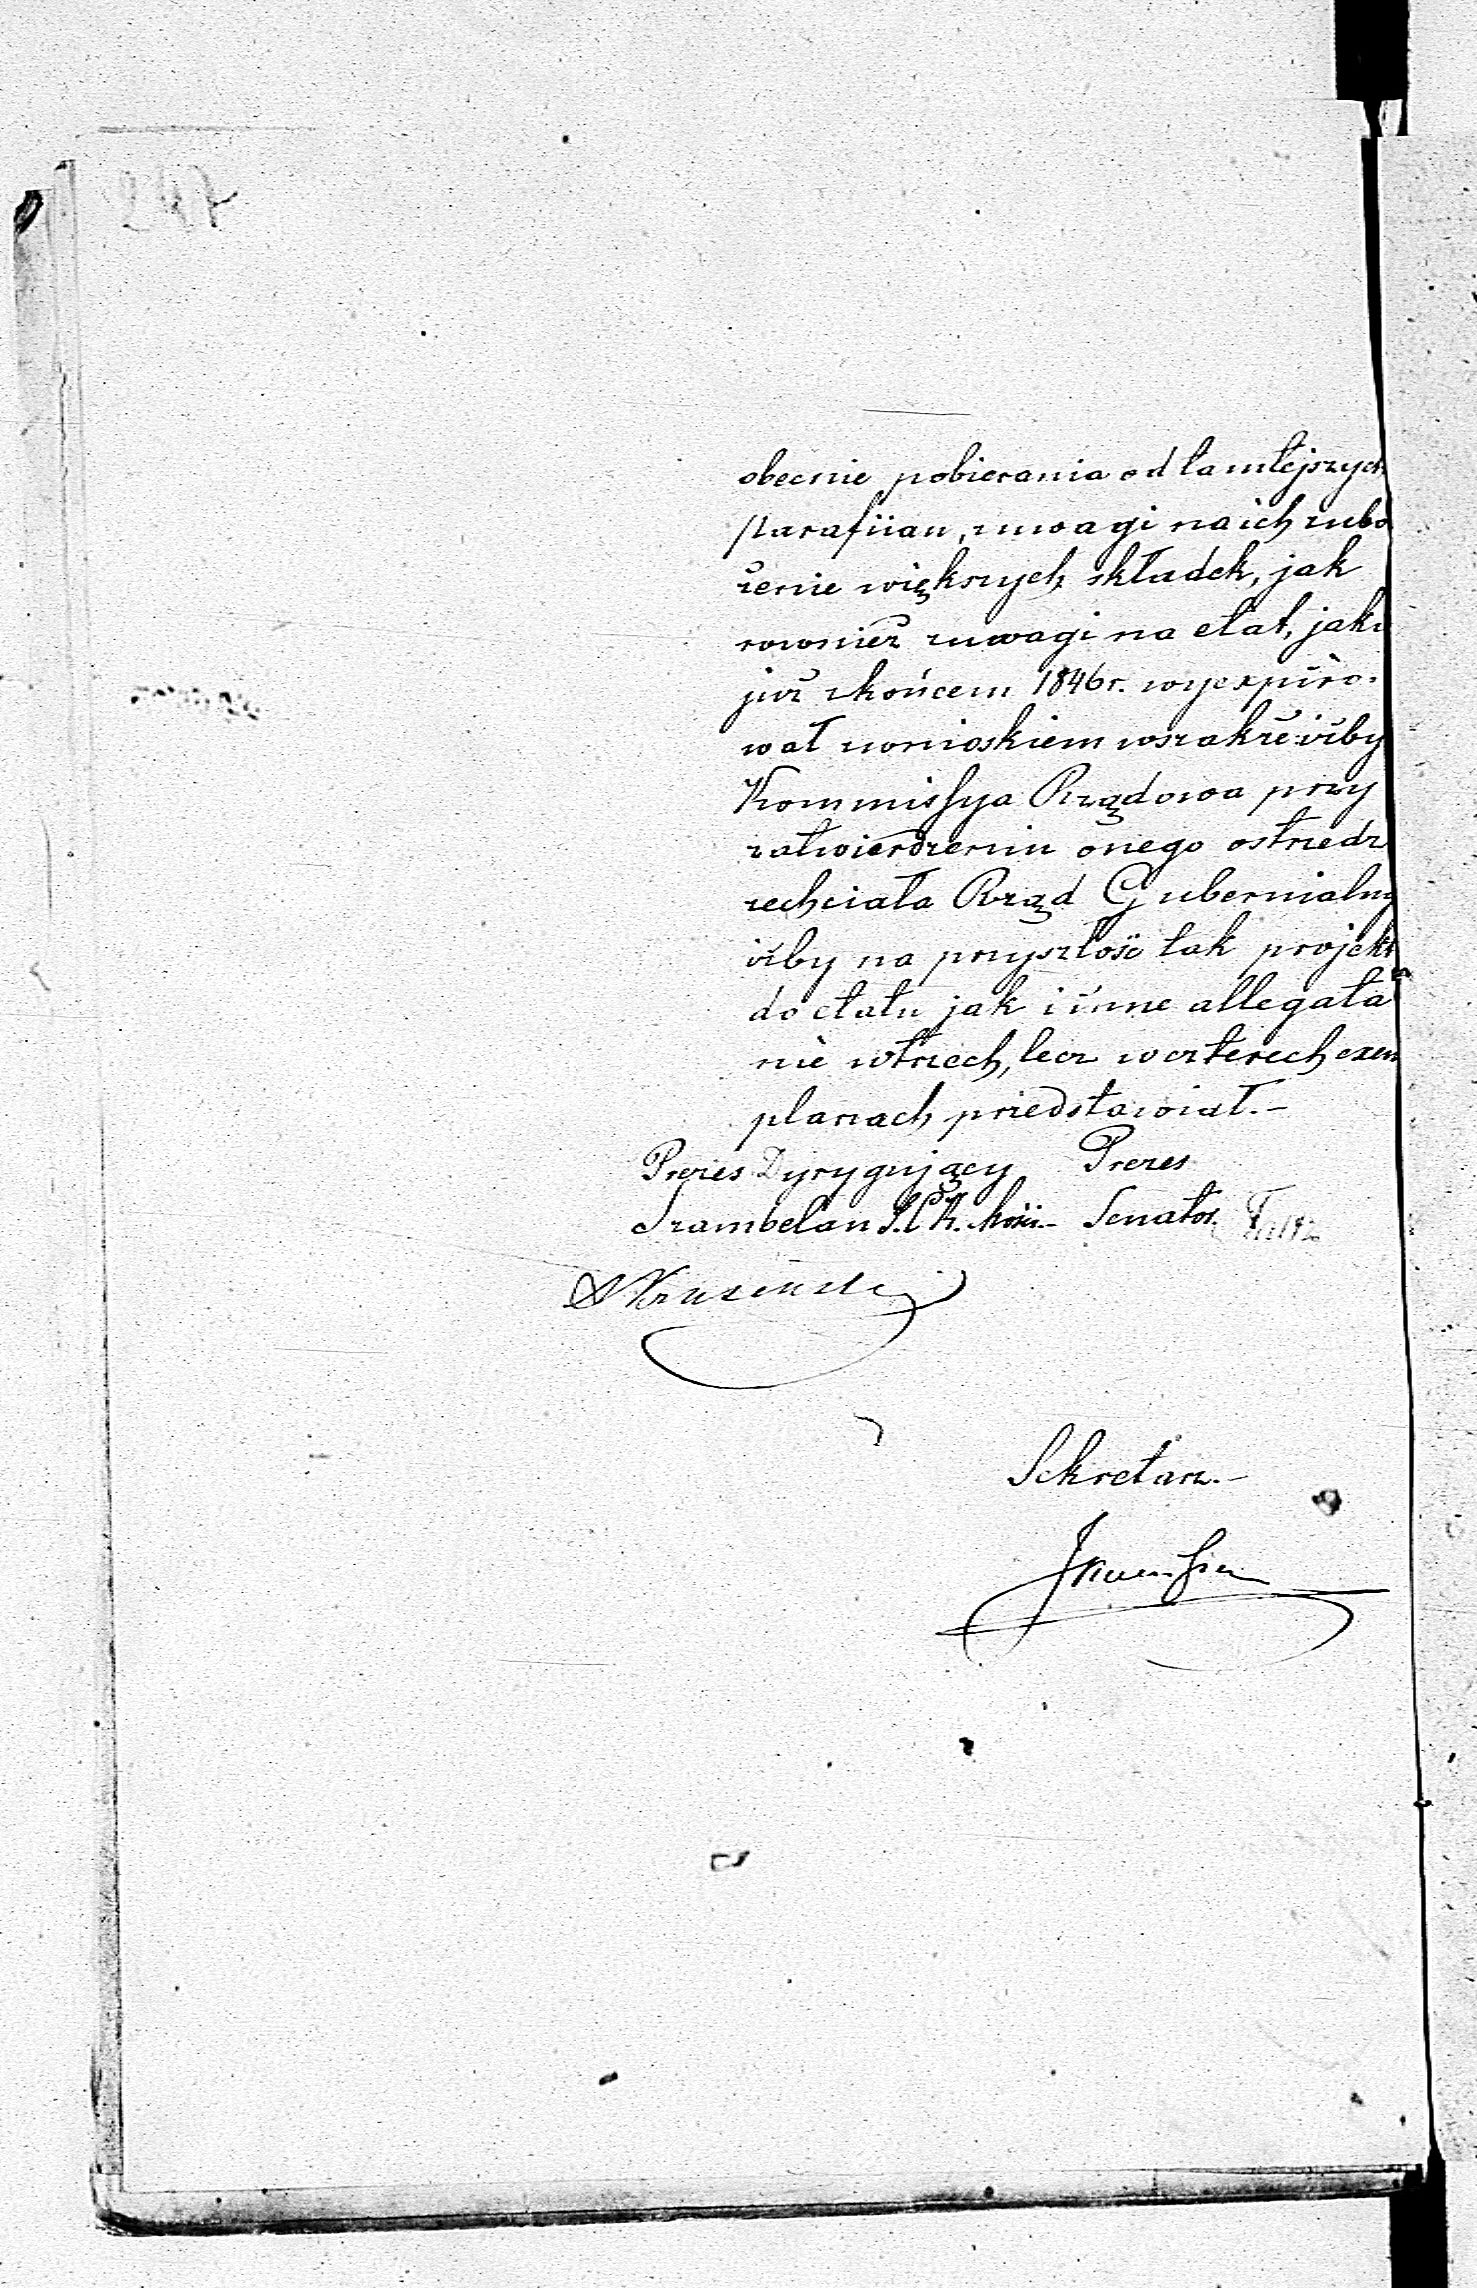 obecnie pobierania od tamtejszych
parafiian, z uwagi na ich zubo
żenie większych składek, jak
rownież z uwagi na etat, jaki
już z końcem 1846 r. wyexpiro-
wał z wnioskiem wszakże iżby
Kommissya Rządowa przy
zatwierdzeniu onego ostrzedz
zechciała Rząd Gubernialny
iżby na przyszłość tak projekt
do etatu jak i inne allegata
nie w trzech, lecz w czterech exem
plarzach przedstawiał.-
Prezes Dyrygujący Prezes
Szambelan J. C. K. Mości.- Senator.
Sekretarz.-